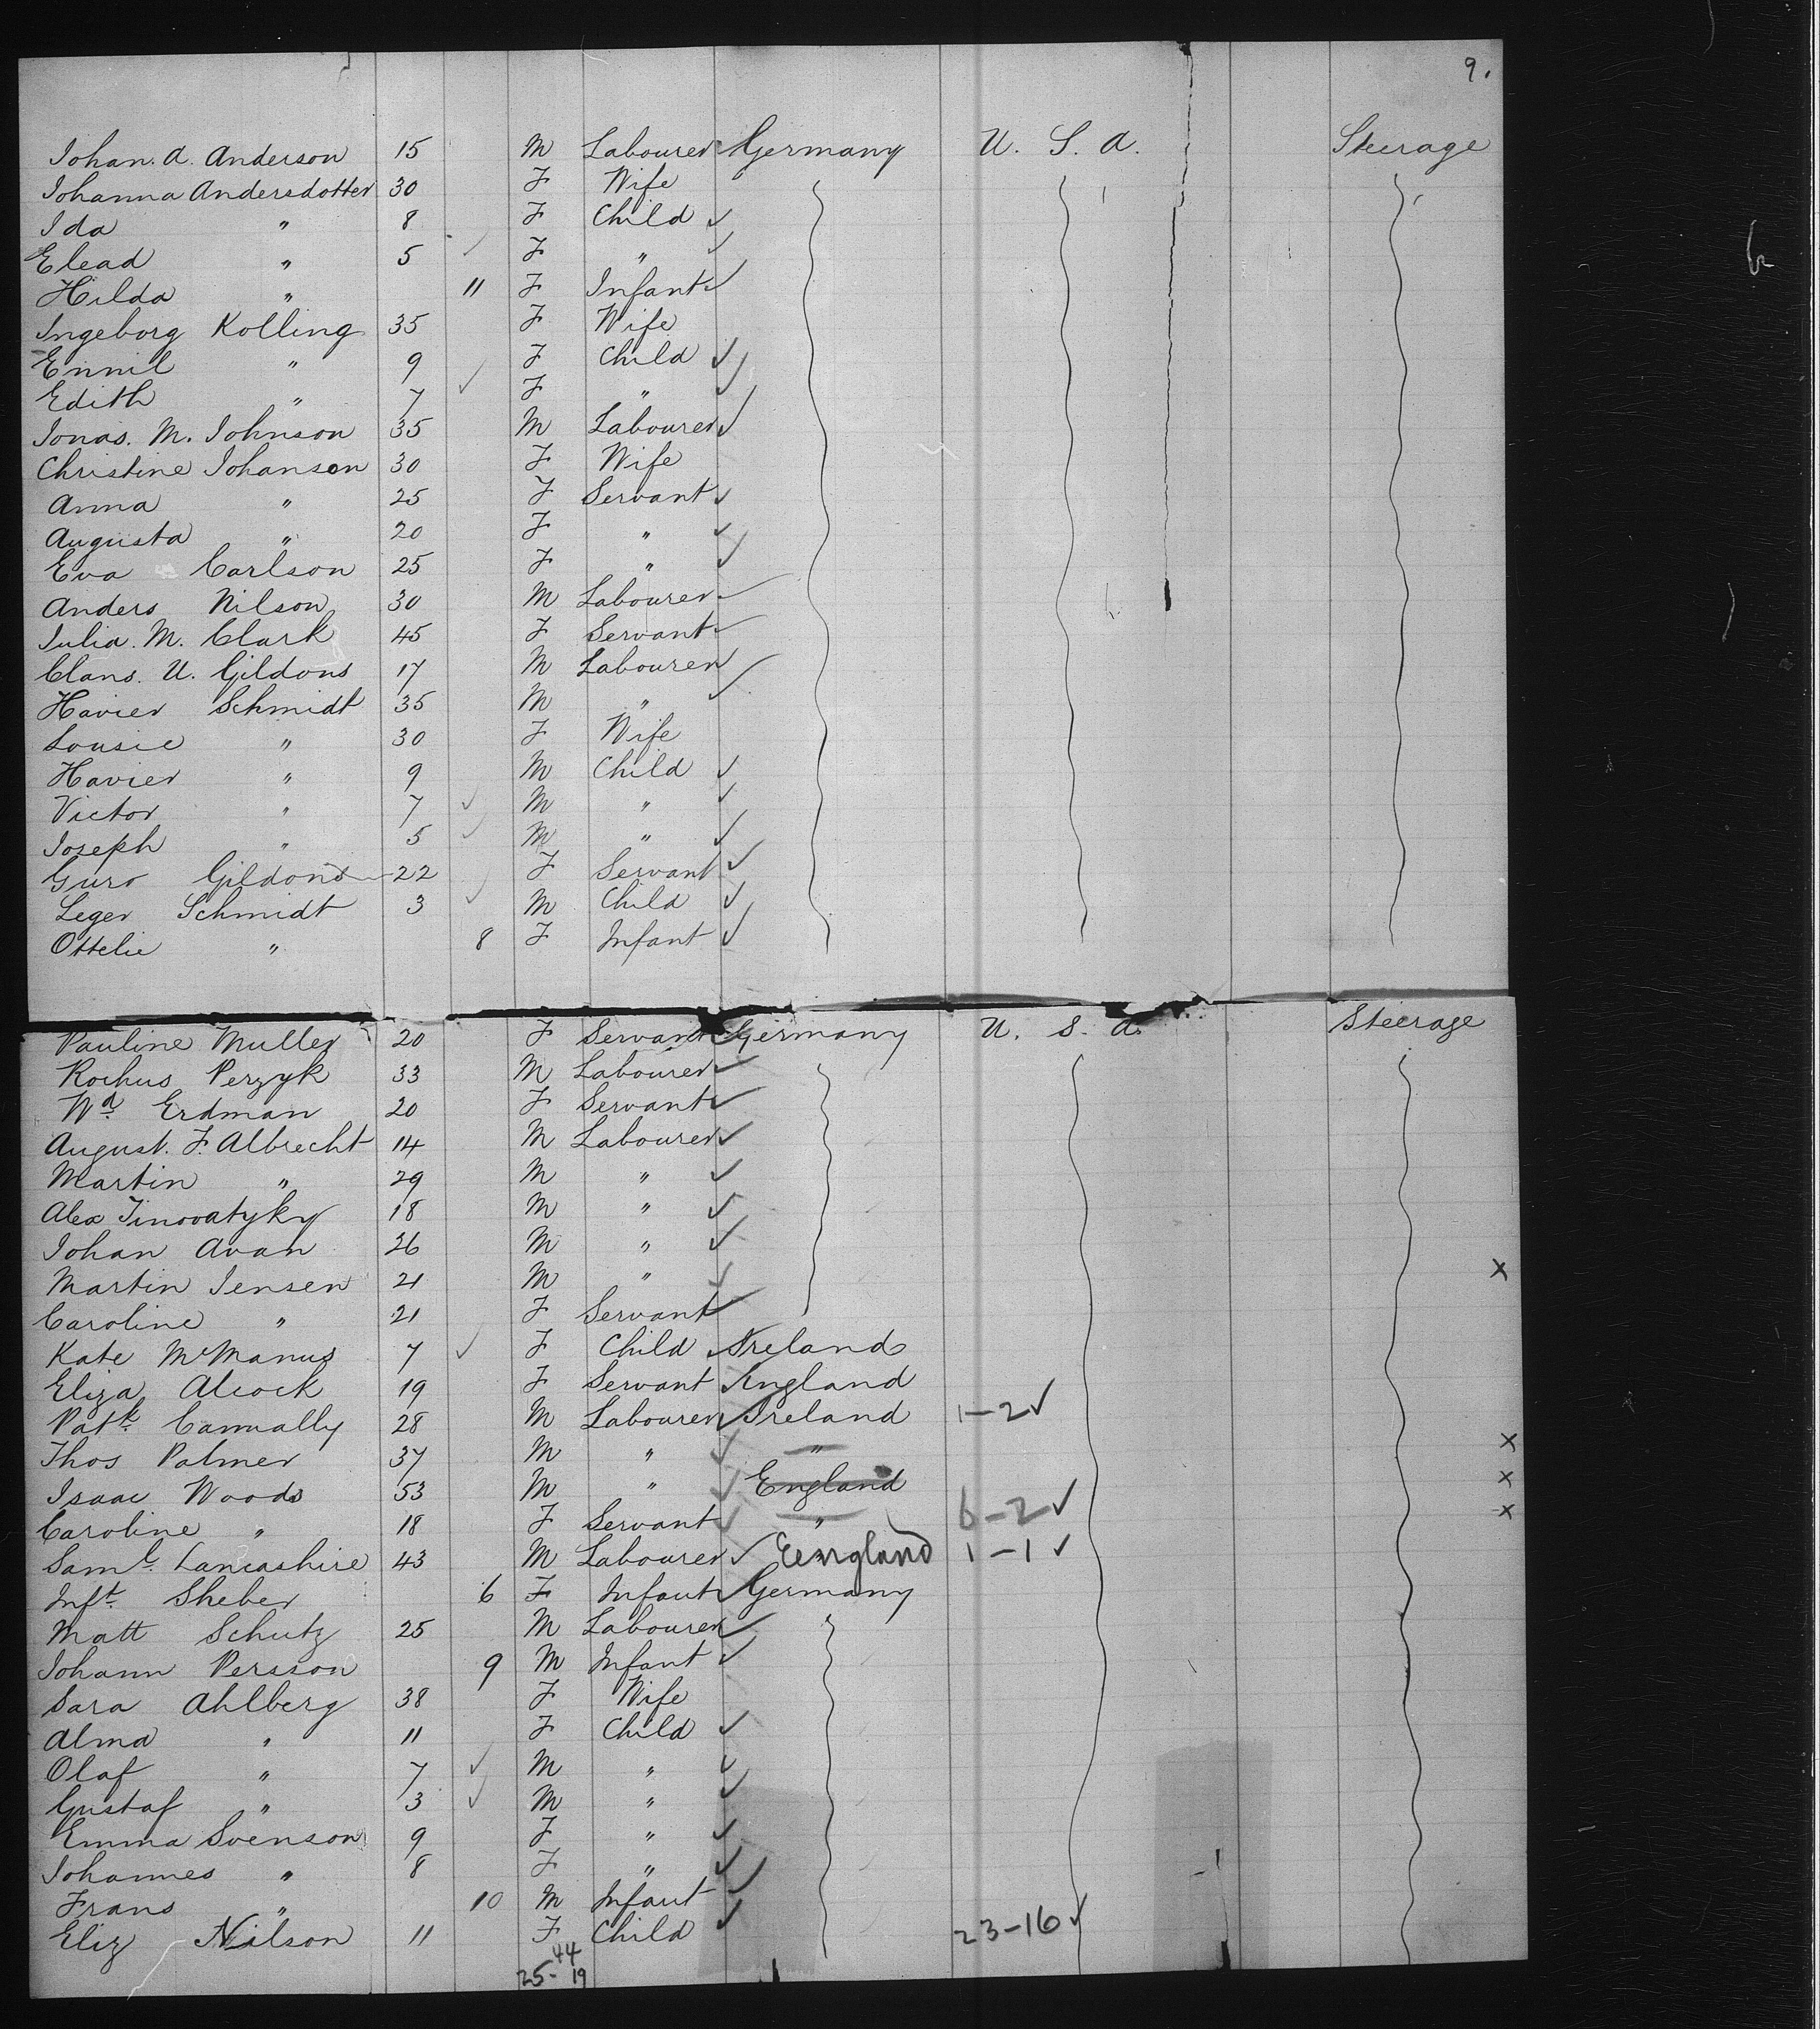 9.
Johan. A. Anderson 15 M Labourer Germany U. S. A. Steerage
Johanna Andersdotter 30 F Wife
Ida " 8 F Child ✓
Elead " 5 ✓ F " ✓
Hilda " 11 F Infant ✓
Ingeborg Kolling 35 F Wife
Ennil " 9 F Child ✓
Edith " 7 ✓ F " ✓
Jonas. M. Johnson 35 M Labourer ✓
Christine Johanson 30 F Wife
Anna " 25 F Servant ✓
Augusta " 20 F " ✓
Eva Carlson 25 F " ✓
Anders Nilson 30 M Labourer ✓
Julia. M. Clark 45 F Servant ✓
Clans. U. Gildons 17 M Labourer ✓
Havier Schmidt 35 M " ✓
Lousie " 30 F Wife
Havier " 9 M Child ✓
Victor " 7 ✓ M " ✓
Joseph " 5 ✓ M " ✓
Guro Gildons 22 F Servant ✓
Leger Schmidt 3 ✓ M Child ✓
Ottelie " 8 F Infant ✓
Pauline Muller 20 F Servant Germany U. S. A. Steerage
Rochus Perzyk 33 M Labourer ✓
Wd. Erdman 20 F Servant ✓
August. F. Albrecht 14 M Labourer ✓
Martin " 29 M " ✓
Alex Tinovatyky 18 M " ✓
Johan Avan 26 M " ✓
Martin Jensen 21 M " ✓ x
Caroline " 21 F Servant ✓
Kate McManus 7 ✓ F Child ✓ Ireland
Eliza Alcock 19 F Servant ✓ England
Patk. Cannally 28 M Labourer ✓ Ireland 1-2 ✓
Thos Palmer 37 M " ✓ " x
Isaac Woods 53 M " ✓ England x
Caroline " 18 F Servant ✓ " 6-2 ✓ x
Saml. Lancashire 43 M Labourer ✓ England 1-1 ✓
Inft. Sheber 6 F Infant ✓ Germany
Matt Schutz 25 M Labourer ✓
Johann Persson 9 M Infant ✓
Sara Ahlberg 38 F Wife
Alma " 11 F Child ✓
Olaf " 7 ✓ M " ✓
Gustaf " 3 ✓ M " ✓
Emma Svenson 9 F " ✓
Johannes " 8 F " ✓
Frans " 10 M Infant ✓
Eliz Nilson 11 F Child ✓ 23-16 ✓
44
25-19